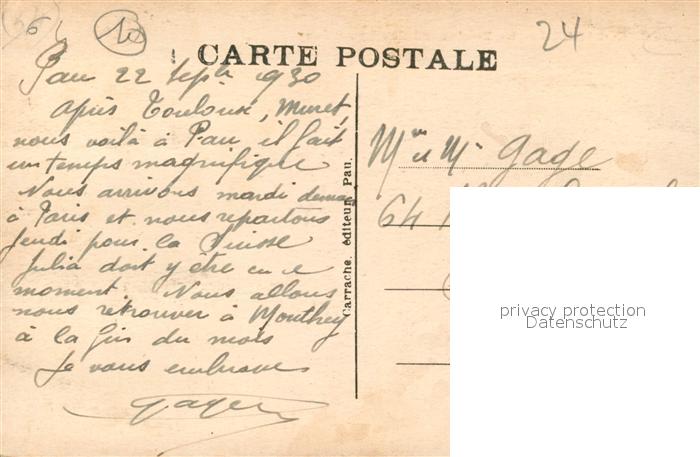 6
10
24
CARTE POSTALE
Pau 22 Sept 1930
Après Toulouse, Muret,
nous voilà à Pau, il fait
un temps magnifique
Nous arrivons mardi demain
à Paris et nous repartons
jeudi pour la Suisse
Julia doit y être en ce
moment. Nous allons
nous retrouver à Monthey
à la fin du mois
Je vous embrasse
Gage
Carrache, éditeur, Pau.
Mme et Mr Gage
64
privacy protection
Datenschutz